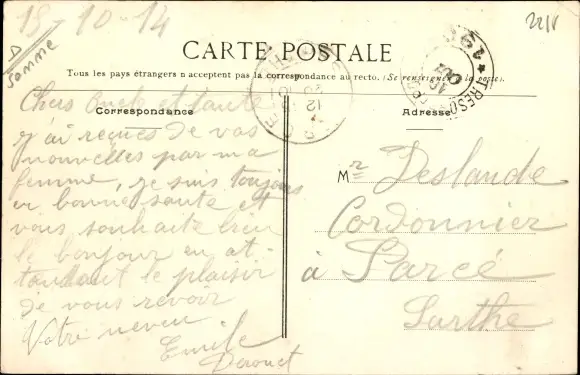 15-10-14
Somme
CARTE POSTALE
Tous les pays étrangers n'acceptent pas la correspondance au recto. (Se renseigner à la poste).
Correspondance
Chers oncle et tante
j'ai reçues de vos
nouvelles par ma
femme, je suis toujours
en bonne santé et
vous souhaite bien
le bonjour en at-
tendant le plaisir
de vous revoir
Votre neveu
Emile
Derouet
Adresse
Mr Deslande
Cordonnier
à Parcé
Sarthe
TRESOR